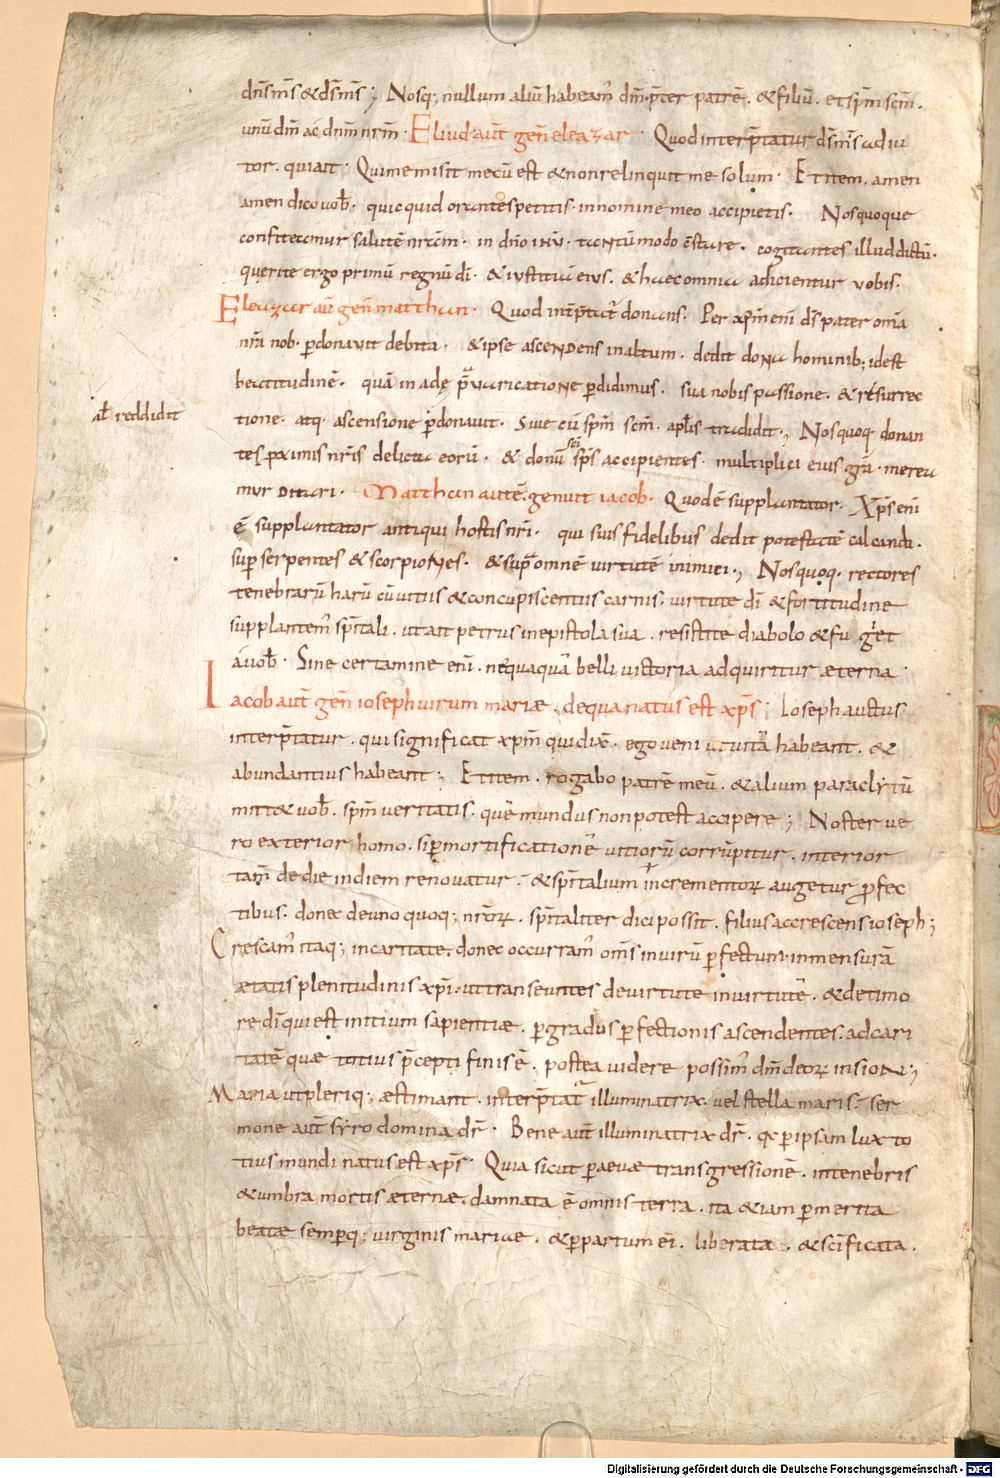 dn̄s m̄s & ds̄ m̄s ; Nosq; nullum aliū habeam̄ dm̄ · p̄ter patrē · & filiū · et spm̄ scm̄ ·
unū dm̄ ac dnm̄ nrm̄ · Eliud aut̄ geñ eleazar · Quod interp̄tatur ds̄ ms̄ adiu
tor · qui ait · Qui me misit mecū est & non relinquit me solum · Et item · amen
amen dico vob̄ · quicquid orantes petitis · in nomine meo accipietis · Nos quoque
confiteamur salutē nrām · in dn̄o ih̄u · tantūmodo ēstare · cogitantes illud dictū ·
querite ergo primū regnū dī · & iustitiā eius · & haec omnia adicientur vobis ·
Eleazar aū geñ matthan · Quod int̄p̄tat̄ donans · Per xp̄m eni ds̄ pater omīa
nrā nob · p̄donavit debita · & ipse ascendens in altum · dedit dona hominib; idest
beatitudinē · quā in adę p̄varicatione p̄didimus · sua nobis passione · & resurrec
al̄ reddidit
tione · atq · ascensione p̄donauit · Sive cū spm̄ scm̄ · apl̄is tradidit ·, Nos quoq · donan
tes p̄ximis nr̄is delicta eorū · & donū sc̄i sp̄s accipientes · multiplici eius grā · merea
mur ditari · Matthan autē genuit iacob · Quod ē supplantator · Xp̄s eni
ē supplantator antiqui hostis nr̄i · qui suis fidelibus dedit potestatē calcandi ·
super serpentes & scorpiones · & sup̄ omnē virtutē inimici ·, Nos quoq · rectores
tenebrarū harū cū vitiis & concupiscentiis carnis · virtute dī & fortitudine
supplantem̄ sp̄itali · ut ait petrus in epistola sua · resistite diabolo & fugiet
a vob̄ · Sine certamine eni · nequaquā belli victoria adquiritur æterna ·
Iacob aut̄ geñ ioseph virum mariæ · de qua natus est xp̄s · Ioseph auctus
interp̄tatur · qui significat xp̄m qui dix̄ · ego veni ut vitā habeant · &
abundantius habeant ; Et item · rogabo patrē meū · & alium paraclytū
mitt& vob̄ · spm̄ veritatis · quē mundus non potest accipere ; Noster ve
ro exterior homo · si p̄ mortificationē vitiorū corrūpitur · interior
tam̄ de die in diem renovatur · & sp̄italium incrementorꝝ augetur p̄fec
tibus · donec de uno quoq; nr̄orꝝ · sp̄italiter dici possit · filius accrescens ioseph ;
Crescam̄ itaq; in caritate · donec occurram̄ om̄s in virū p̄fectum · in mensurā
ætatis plenitudinis xp̄i · ut transeuntes de virtute in virtutē · & de timo
re dī qui est initium sapientiæ · p̄ gradus p̄fectionis ascendentes · ad cari
tatē quæ totius p̄cepti finis ē · postea videre possim̄ dm̄ deorꝝ in sion ;
Maria ut pleriq; æstimant · interp̄tat̄ illuminatrix · vel stella maris · ser
mone aut̄ syro domina dr̄ · Bene aut̄ illuminatrix dr̄ · qa p̄ ipsam lux to
tius mundi natus est xp̄s · Quia sicut p̄ aevæ transgressionē · in tenebris
& umbra mortis æternæ · damnata ē omnis terra · ita & iam p̄ merita
beatæ semp̄q; virginis mariæ · & p̄ partum ei · liberata · & scīficata ·
Digitalisierung gefördert durch die Deutsche Forschungsgemeinschaft - DFG